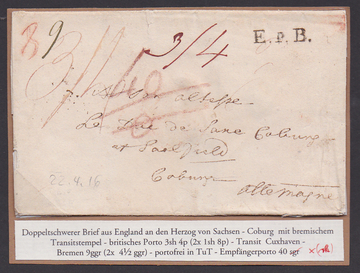 89
3/4
E. P. B.
Son altesse
Le Duc de Saxe Coburg
et Saalfeld
Coburg
allemagne
22.4.16
Doppeltschwerer Brief aus England an den Herzog von Sachsen - Coburg mit bremischem
Transitstempel - britisches Porto 3sh 4p (2x 1sh 8p) - Transit Cuxhaven -
Bremen 9ggr (2x 4½ ggr) - portofrei in TuT - Empfängerporto 40 sgr